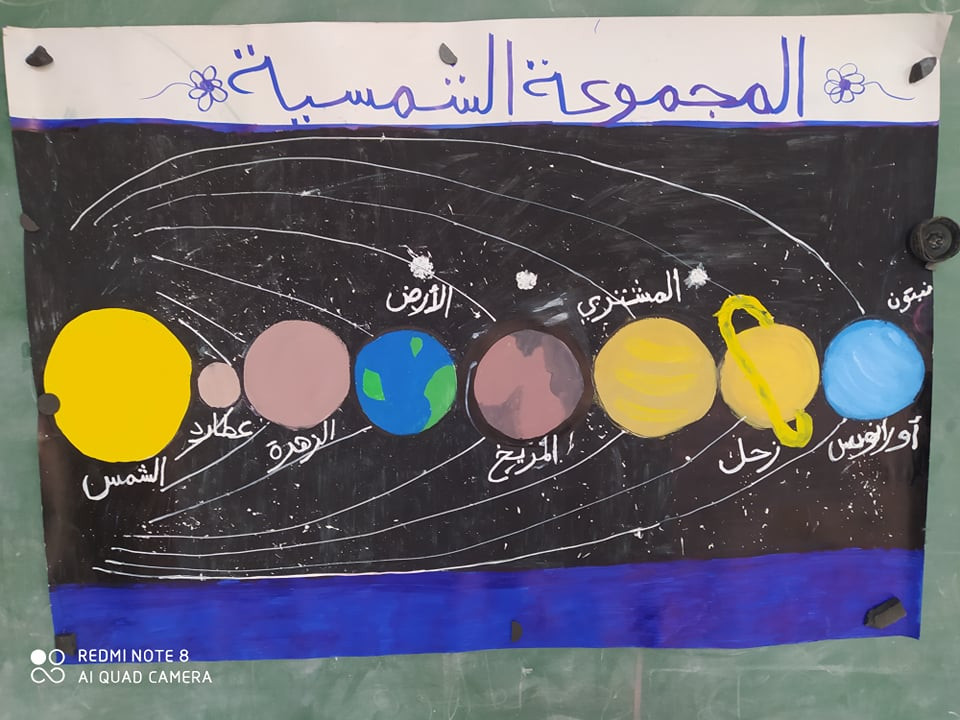 المجموعة الشمسية
الأرض
المشتري
نبتون
عطارد
الزهرة
الشمس
المريخ
زحل
أورانوس
REDMI NOTE 8
AI QUAD CAMERA